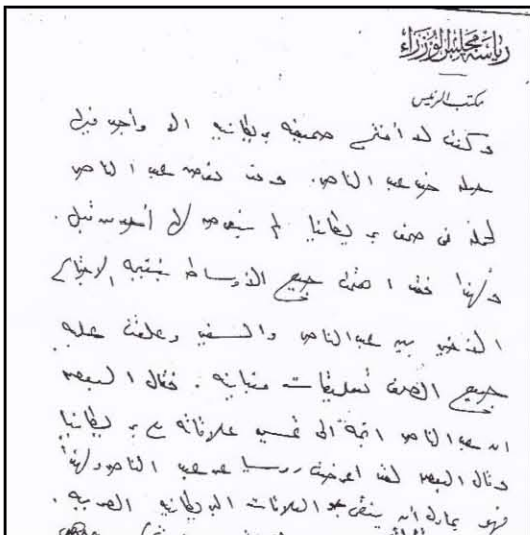 رياسة مجلس الوزراء
مكتب الرئيس
وكنت لا أفتح صحيفة بريطانية الا وأجد فيها
حملة ضد عبد الناصر. وقد تعرض عبد الناصر
لحملة في صحف بريطانيا لم يتعرض لها أحد من قبل.
ولهذا فقد اهتمت جميع الأوساط بنتيجة الاجتماع
الأخير بين عبد الناصر والسفير وعلقت عليه
جميع الصحف تعليقات متباينة. فقال البعض
ان عبد الناصر اتجه الى تحسين علاقاته مع بريطانيا
وقال البعض لقد أعرضت روسيا عن عبد الناصر ولهذا
فهو يحاول أن ينقي جو العلاقات البريطانية المصرية.